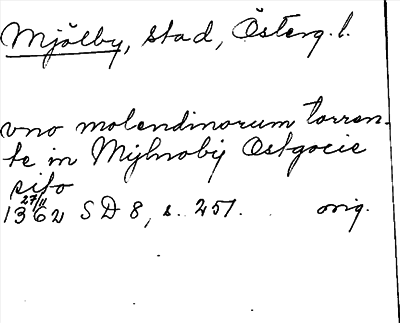 Mjölby, stad, Österg. l.
vno molendinorum torren-
te in Mijlnobij Ostgocie
sito
1362 27/11 SD 8, s. 251. orig.